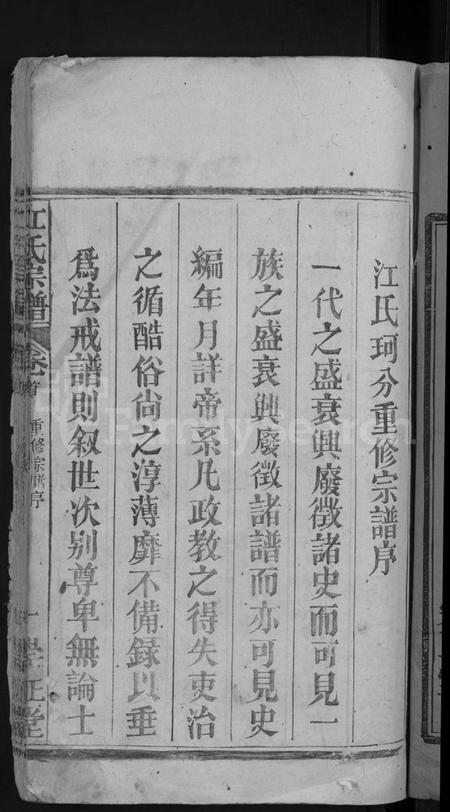 江氏珂分重修宗譜序
一代之盛衰興廢徵諸史而可見一
族之盛衰興廢徵諸譜而亦可見史
編年月詳帝系凡政教之得失吏治
之循酷俗尚之淳薄靡不備録以垂
為法戒譜則叙世次别尊卑無論士
江氏宗譜
卷首
重修宗譜序
一
FamilySearch